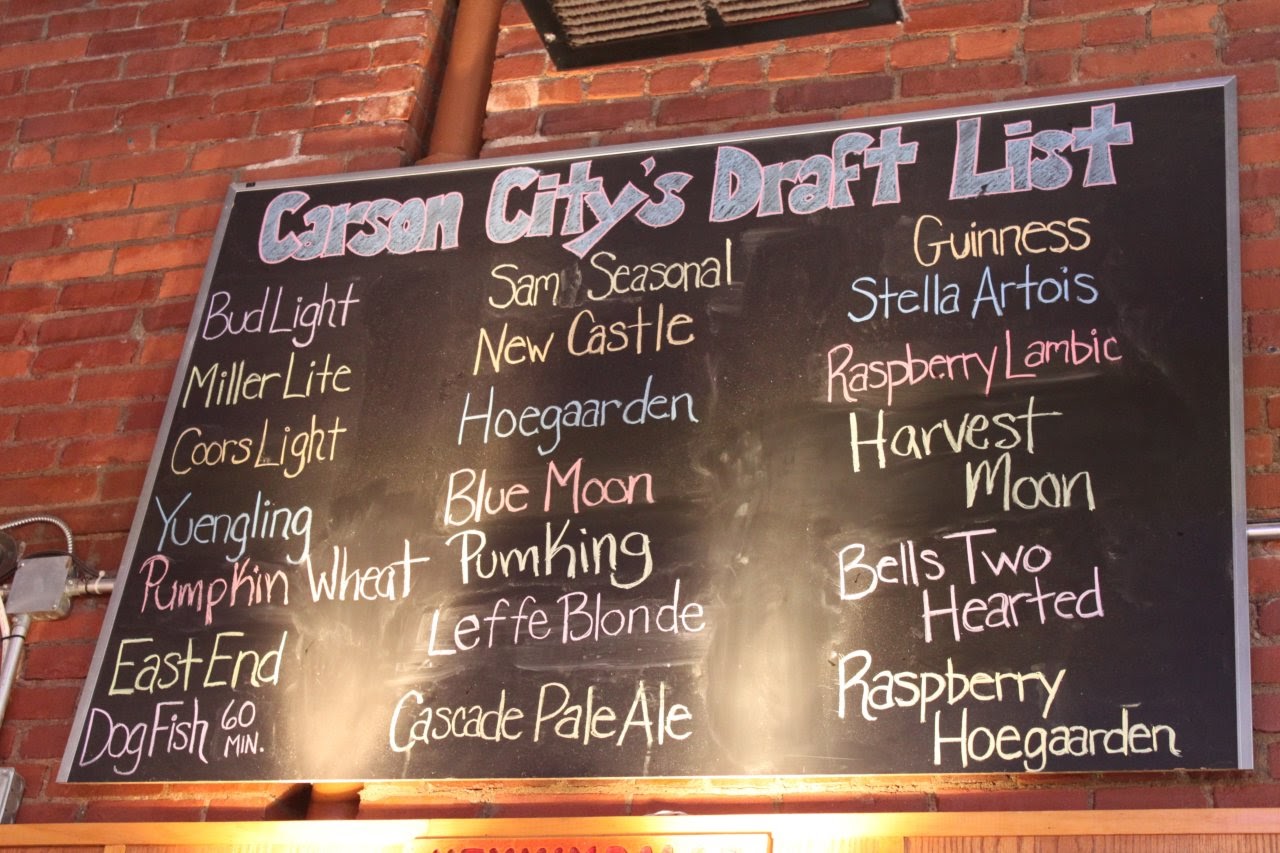 Carson City's Draft List
Bud Light
Miller Lite
Coors Light
Yuengling
Pumpkin Wheat
East End
DogFish 60
MIN.
Sam Seasonal
New Castle
Hoegaarden
Blue Moon
PumKing
Leffe Blonde
Cascade Pale Ale
Guinness
Stella Artois
Raspberry Lambic
Harvest
Moon
Bells Two
Hearted
Raspberry
Hoegaarden